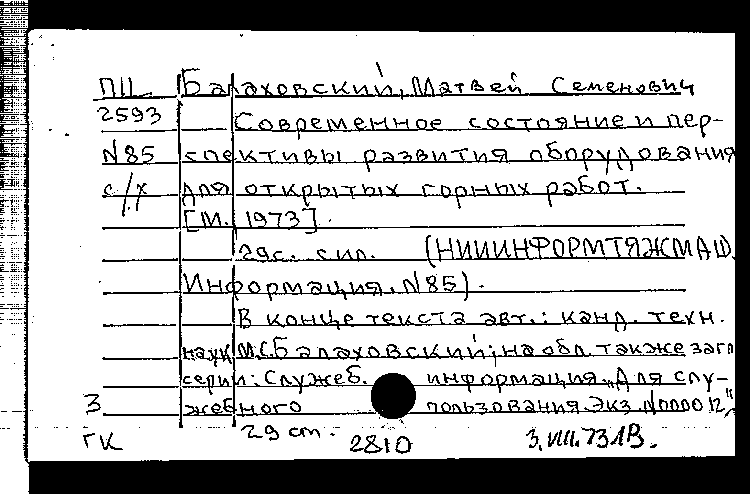 ПII Балаховский, Матвей Семенович
2593 Современное состояние и пер-
N85 спективы развития оборудования
с/х для открытых горных работ.
[М., 1973].
29с. с ил. (НИИИНФОРМТЯЖМАШ.
Информация. N85).
В конце текста авт.: канд. техн.
наук М.С.Балаховский; на обл. также загл
серии: Служеб. информация. „Для слу-
3 жебного пользования. Экз. N00012"
ГК 29 см. 2810 3.VIII.73 ЛВ.